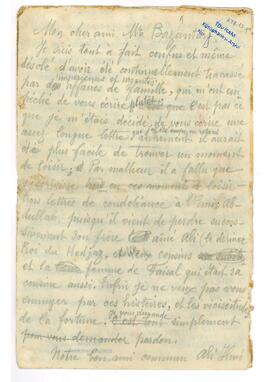 Mon cher ami Mr Bazantay
Je suis tout à fait confus et même
désolé d'avoir été continuellement tracassé
imprévues et urgentes
par des affaires de famille, qui m'ont em
pêché de vous écrire plutôt que c'est parce
que je m'étais décidé de vous écrire une
assez longue lettre autrement il aurait
été plus facile de trouver un moment
de loisir, et Par malheur il a fallu que
en ces moments de loisir
des lettres de condoléance à l'Emir Ab-
dullah, puisqu'il vient de perdre succes-
sivement son frère aîné Ali (le dernier
Roi du Hedjaz, cousins
et la femme de Faisal qui était sa
cousine aussi. Enfin je ne veux pas vous
ennuyer par ces histoires, et les vicissitudes
je vous demande
de la fortune. C'est tout simplement
pour vous demander pardon.
Notre bon ami commun Ali